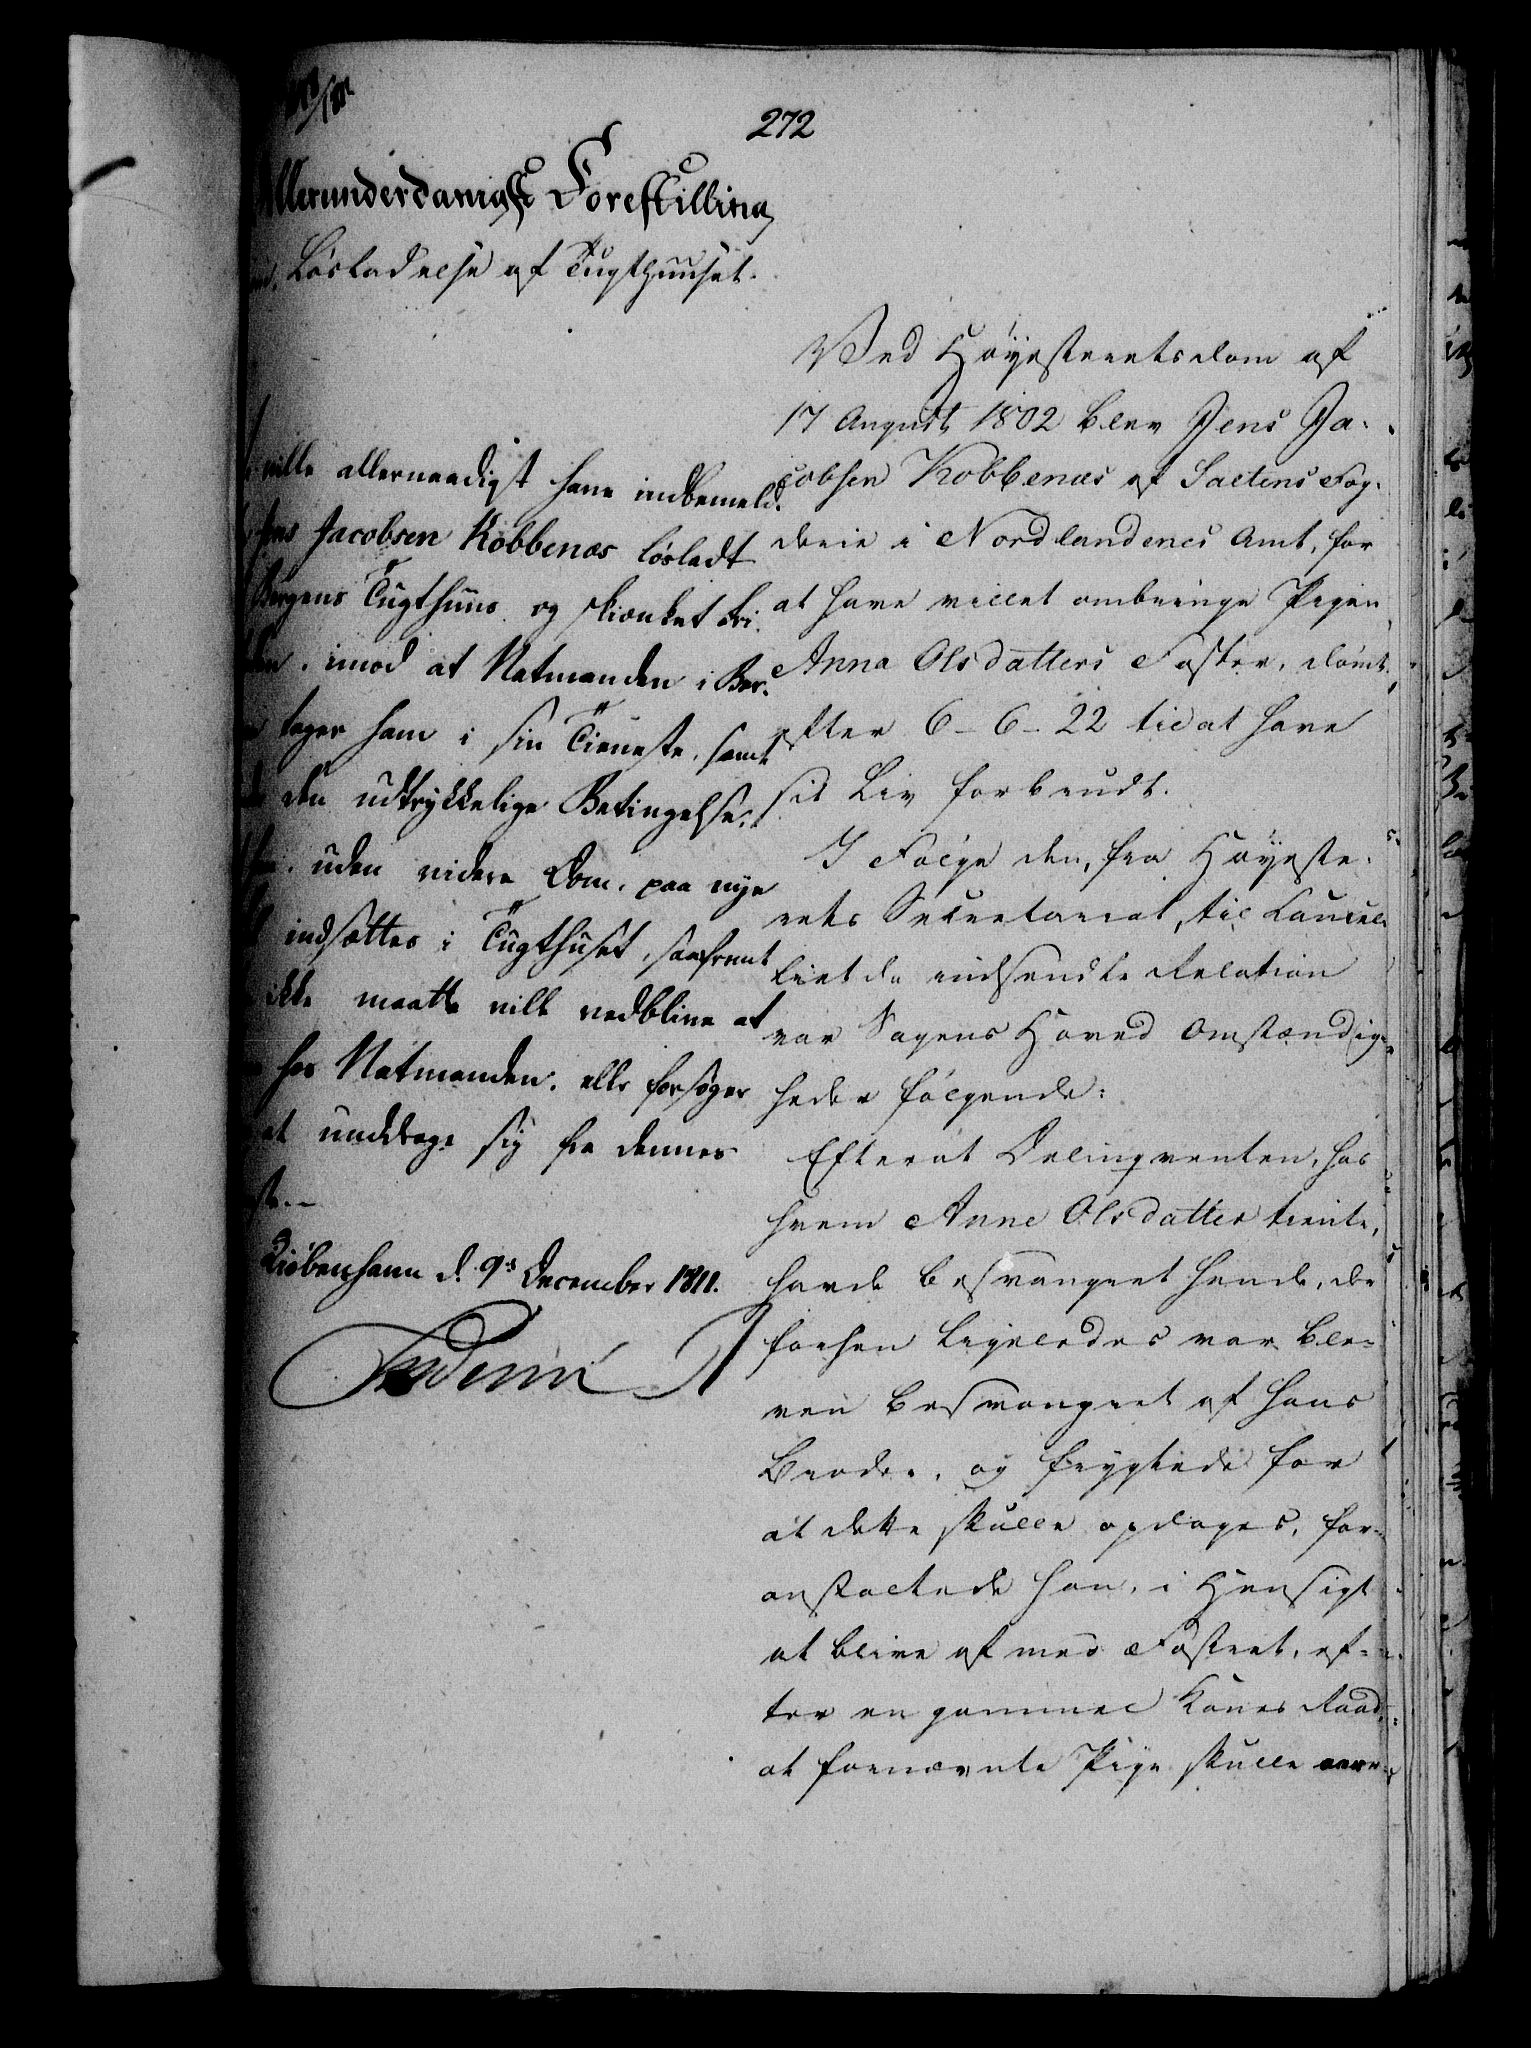 272
Allerunderdanigst Forestilling
Løsladelse af Tugthuuset.
ville allernaadigst have indbemeld.
Jens Jacobsen Kobbenæs løsladt
Bergens Tugthuus og skienket Fri-
imod at Natmanden i Ber-
tager ham i sin Tieneste, samt
den udtrykkelige Betingelse, at
uden videre Dom, paa nye
indsættes i Tugthuset, saafremt
ikke maatte ville vedblive at
hos Natmanden, eller forsøger
at unddrage sig fra dennes
Kiøbenhavn d. 9de December 1811.
Frederik R
Ved Høyesteretsdom af
17 August 1802 blev Jens Ja-
cobsen Kobbenæs af Saltens Fog-
derie i Nordlandenes Amt, for
at have villet ombringe Pigen
Anna Olsdatters Foster, dømt
efter 6-6-22 til at have
sit Liv forbrudt.
I Følge den, fra Høyeste-
rets Secretariat, til Cancel-
liet da indsendte Relation
var Sagens Hoved Omstændig-
heder følgende:
Efterat Delinqventen, hos
hvem Anne Olsdatter tiente,
havde besvangret hende, der
forhen ligeledes var ble-
ven besvangret af hans
Broder, og frygtede for
at dette skulle opdages, for-
anstaltede han, i Hensigt
at blive af med Fosteret, ef-
ter en gammel Kones Raad,
at fornævnte Pige skulle aare-